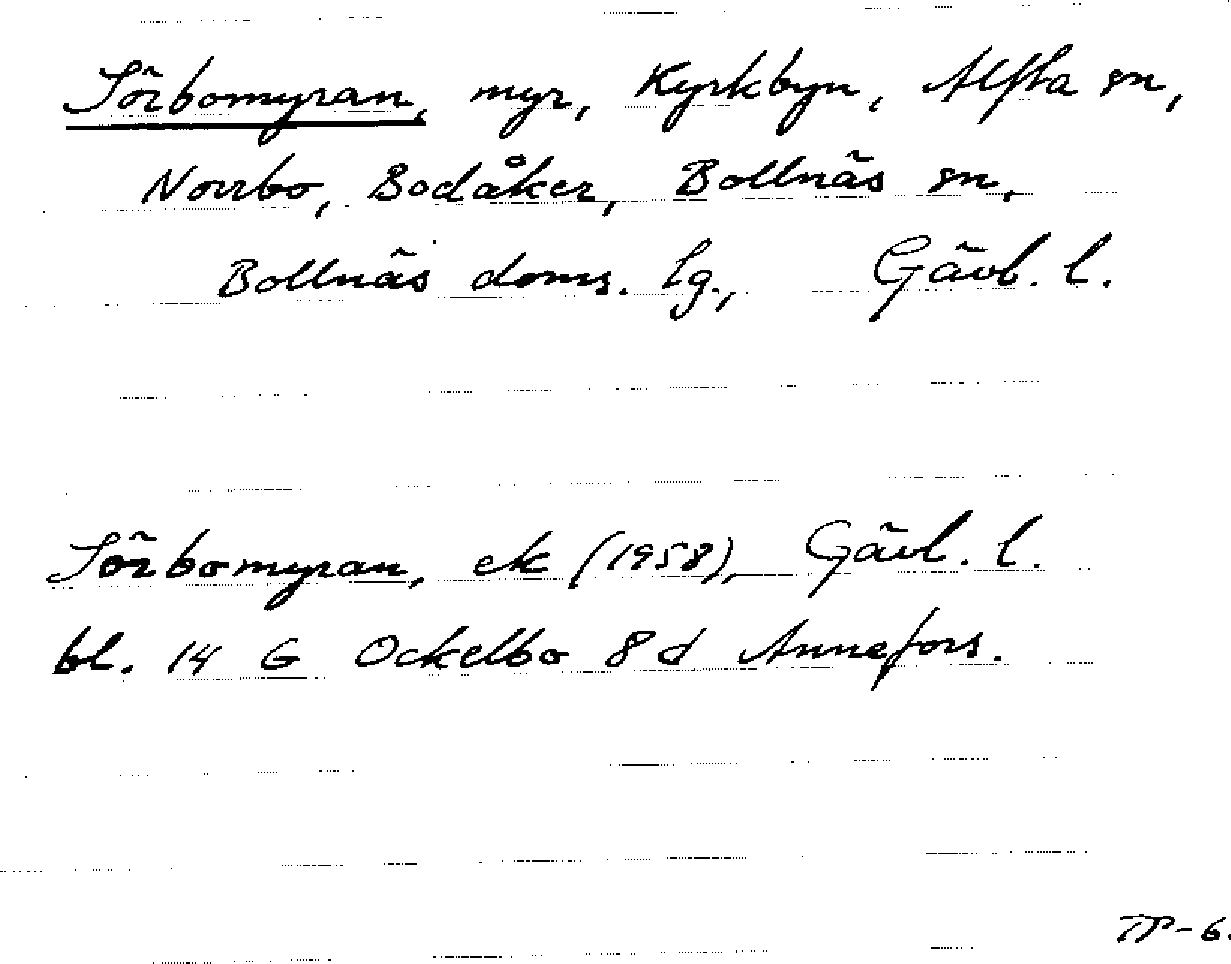 Sörbomyran, myr, Kyrkbyn, Alfta sn,
Norrbo, Bodåker, Bollnäs sn,
Bollnäs doms. lg., Gävl. l.
Sörbomyran, ek (1958), Gävl. l.
bl. 14 G Ockelbo 8 d Annefors.
TP-6.